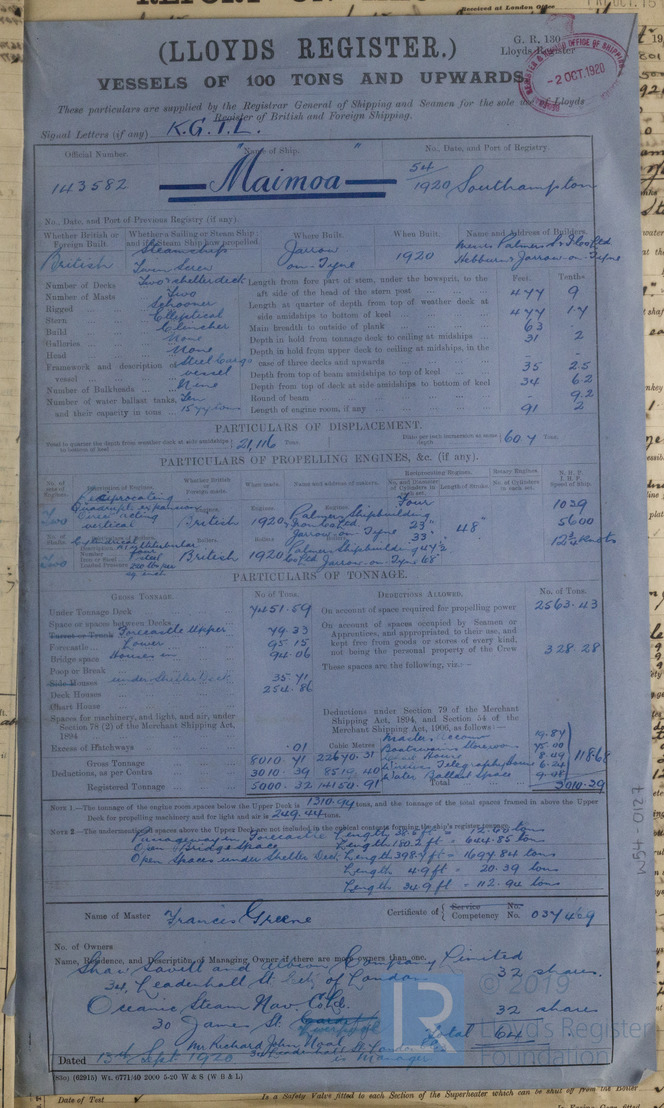 Received at London Office
FRI. OCT. 15
(LLOYDS REGISTER.)
G. R. 130
Lloyds Register
VESSELS OF 100 TONS AND UPWARDS.
REGISTER OFFICE OF SHIPPING
-2 OCT. 1920
These particulars are supplied by the Registrar General of Shipping and Seamen for the sole use of Lloyds
Register of British and Foreign Shipping.
Signal Letters (if any) K.G.T.L.
Official Number. Name of Ship. No., Date, and Port of Registry.
143582 "Maimoa" 54/1920 Southampton
No., Date, and Port of Previous Registry (if any).
Whether British or Foreign Built. Whether a Sailing or Steam Ship; and if a Steam Ship how propelled. Where Built. When Built. Name and Address of Builders.
British Steamship Twin Screw Jarrow on-Tyne 1920 Messrs Palmers Hebburn & Jarrow-on-Tyne
Number of Decks Two & shelter deck
Number of Masts Two
Rigged Schooner
Stern Elliptical
Build Clencher
Galleries None
Head None
Framework and description of vessel Steel Cargo vessel
Number of Bulkheads Nine
Number of water ballast tanks, and their capacity in tons Ten 1577 tons
Feet. Tenths.
Length from fore part of stem, under the bowsprit, to the aft side of the head of the stern post 477 9
Length at quarter of depth from top of weather deck at side amidships to bottom of keel 477 17
Main breadth to outside of plank 63 -
Depth in hold from tonnage deck to ceiling at midships 31 2
Depth in hold from upper deck to ceiling at midships, in the case of three decks and upwards - -
Depth from top of beam amidships to top of keel 35 25
Depth from top of deck at side amidships to bottom of keel 34 62
Round of beam - 92
Length of engine room, if any 91 2
PARTICULARS OF DISPLACEMENT.
Total to quarter the depth from weather deck at side amidships to bottom of keel 21,116 Tons. Ditto per inch immersion at same depth 60.7 Tons.
PARTICULARS OF PROPELLING ENGINES, &c. (if any).
No. of sets of Engines. Description of Engines. Whether British or Foreign made. When made. Name and address of makers. Reciprocating Engines. No. and Diameter of Cylinders in each set. Length of Stroke. Rotary Engines. No. of Cylinders in each set. N. H. P. I. H. P. Speed of Ship.
Two Reciprocating Quadruple expansion Direct acting vertical
Engines. British 1920 Palmers Shipbuilding & Iron Co Ltd Jarrow on Tyne
Four 23" 33" 48" 1039 5600 knots
No. of Shafts. Two
Boilers. British 1920 Palmers Shipbuilding Co Ltd Jarrow-on-Tyne
PARTICULARS OF TONNAGE.
GROSS TONNAGE. No. of Tons. DEDUCTIONS ALLOWED. No. of Tons.
Under Tonnage Deck 7451.59
Space or spaces between Decks
Turret or Trunk Forecastle Upper 79.33
Forecastle Lower 95.15
Bridge space Houses in 94.06
Poop or Break
Side Houses under Shelter Deck 35.41
Deck Houses 254.86
Chart House
Spaces for machinery, and light, and air, under Section 78 (2) of the Merchant Shipping Act, 1894
Excess of Hatchways .01
Cubic Metres
Gross Tonnage 8010.41 22670.31
Deductions, as per Contra 3010.39 8519.40
Registered Tonnage 5000.32 14150.91
On account of space required for propelling power 2563.43
On account of spaces occupied by Seamen or Apprentices, and appropriated to their use, and kept free from goods or stores of every kind, not being the personal property of the Crew 328.28
These spaces are the following, viz.:—
Deductions under Section 79 of the Merchant Shipping Act, 1894, and Section 54 of the Merchant Shipping Act, 1906, as follows:—
Master's Accom 19.87
Boatswains Stores 75.00
House 8.49
Wireless Telegraphy House 6.24
Water Ballast space 9.08
118.68
Total 3010.39
NOTE 1.—The tonnage of the engine room spaces below the Upper Deck is 1310.94 tons, and the tonnage of the total spaces framed in above the Upper Deck for propelling machinery and for light and air is 249.44 tons.
NOTE 2.—The undermentioned spaces above the Upper Deck are not included in the cubical contents forming the ship's register tonnage.
Passageway in Forecastle Length 38.6 ft = 12.60 tons
Open Bridge space Length 180.2 ft = 644.85 tons
Open Spaces under Shelter Deck Length 398.7 ft = 1694.84 tons
Length 4.9 ft = 20.39 tons
Length 34.9 ft = 112.94 tons
W54-0127
Name of Master Francis Greene
Certificate of Service No. Competency No. 037469
No. of Owners
Name, Residence, and Description of Managing Owner if there are more owners than one.
Shaw Savill and Albion Company Limited
34, Leadenhall St City of London 32 shares.
Oceanic Steam Nav. Co Ld. 32 shares
30 James St. Liverpool
Total 64
Mr Richard John Noal 34 Leadenhall St London is Manager
Dated 13th Sept 1920
(62915) Wt. 6771/40 2000 5-20 W & S (W B & L)
LR
© 2019
Lloyd's Register
Foundation
Date of Test
Is a Safety Valve fitted to each Section of the Superheater which can be shut off from the Boiler